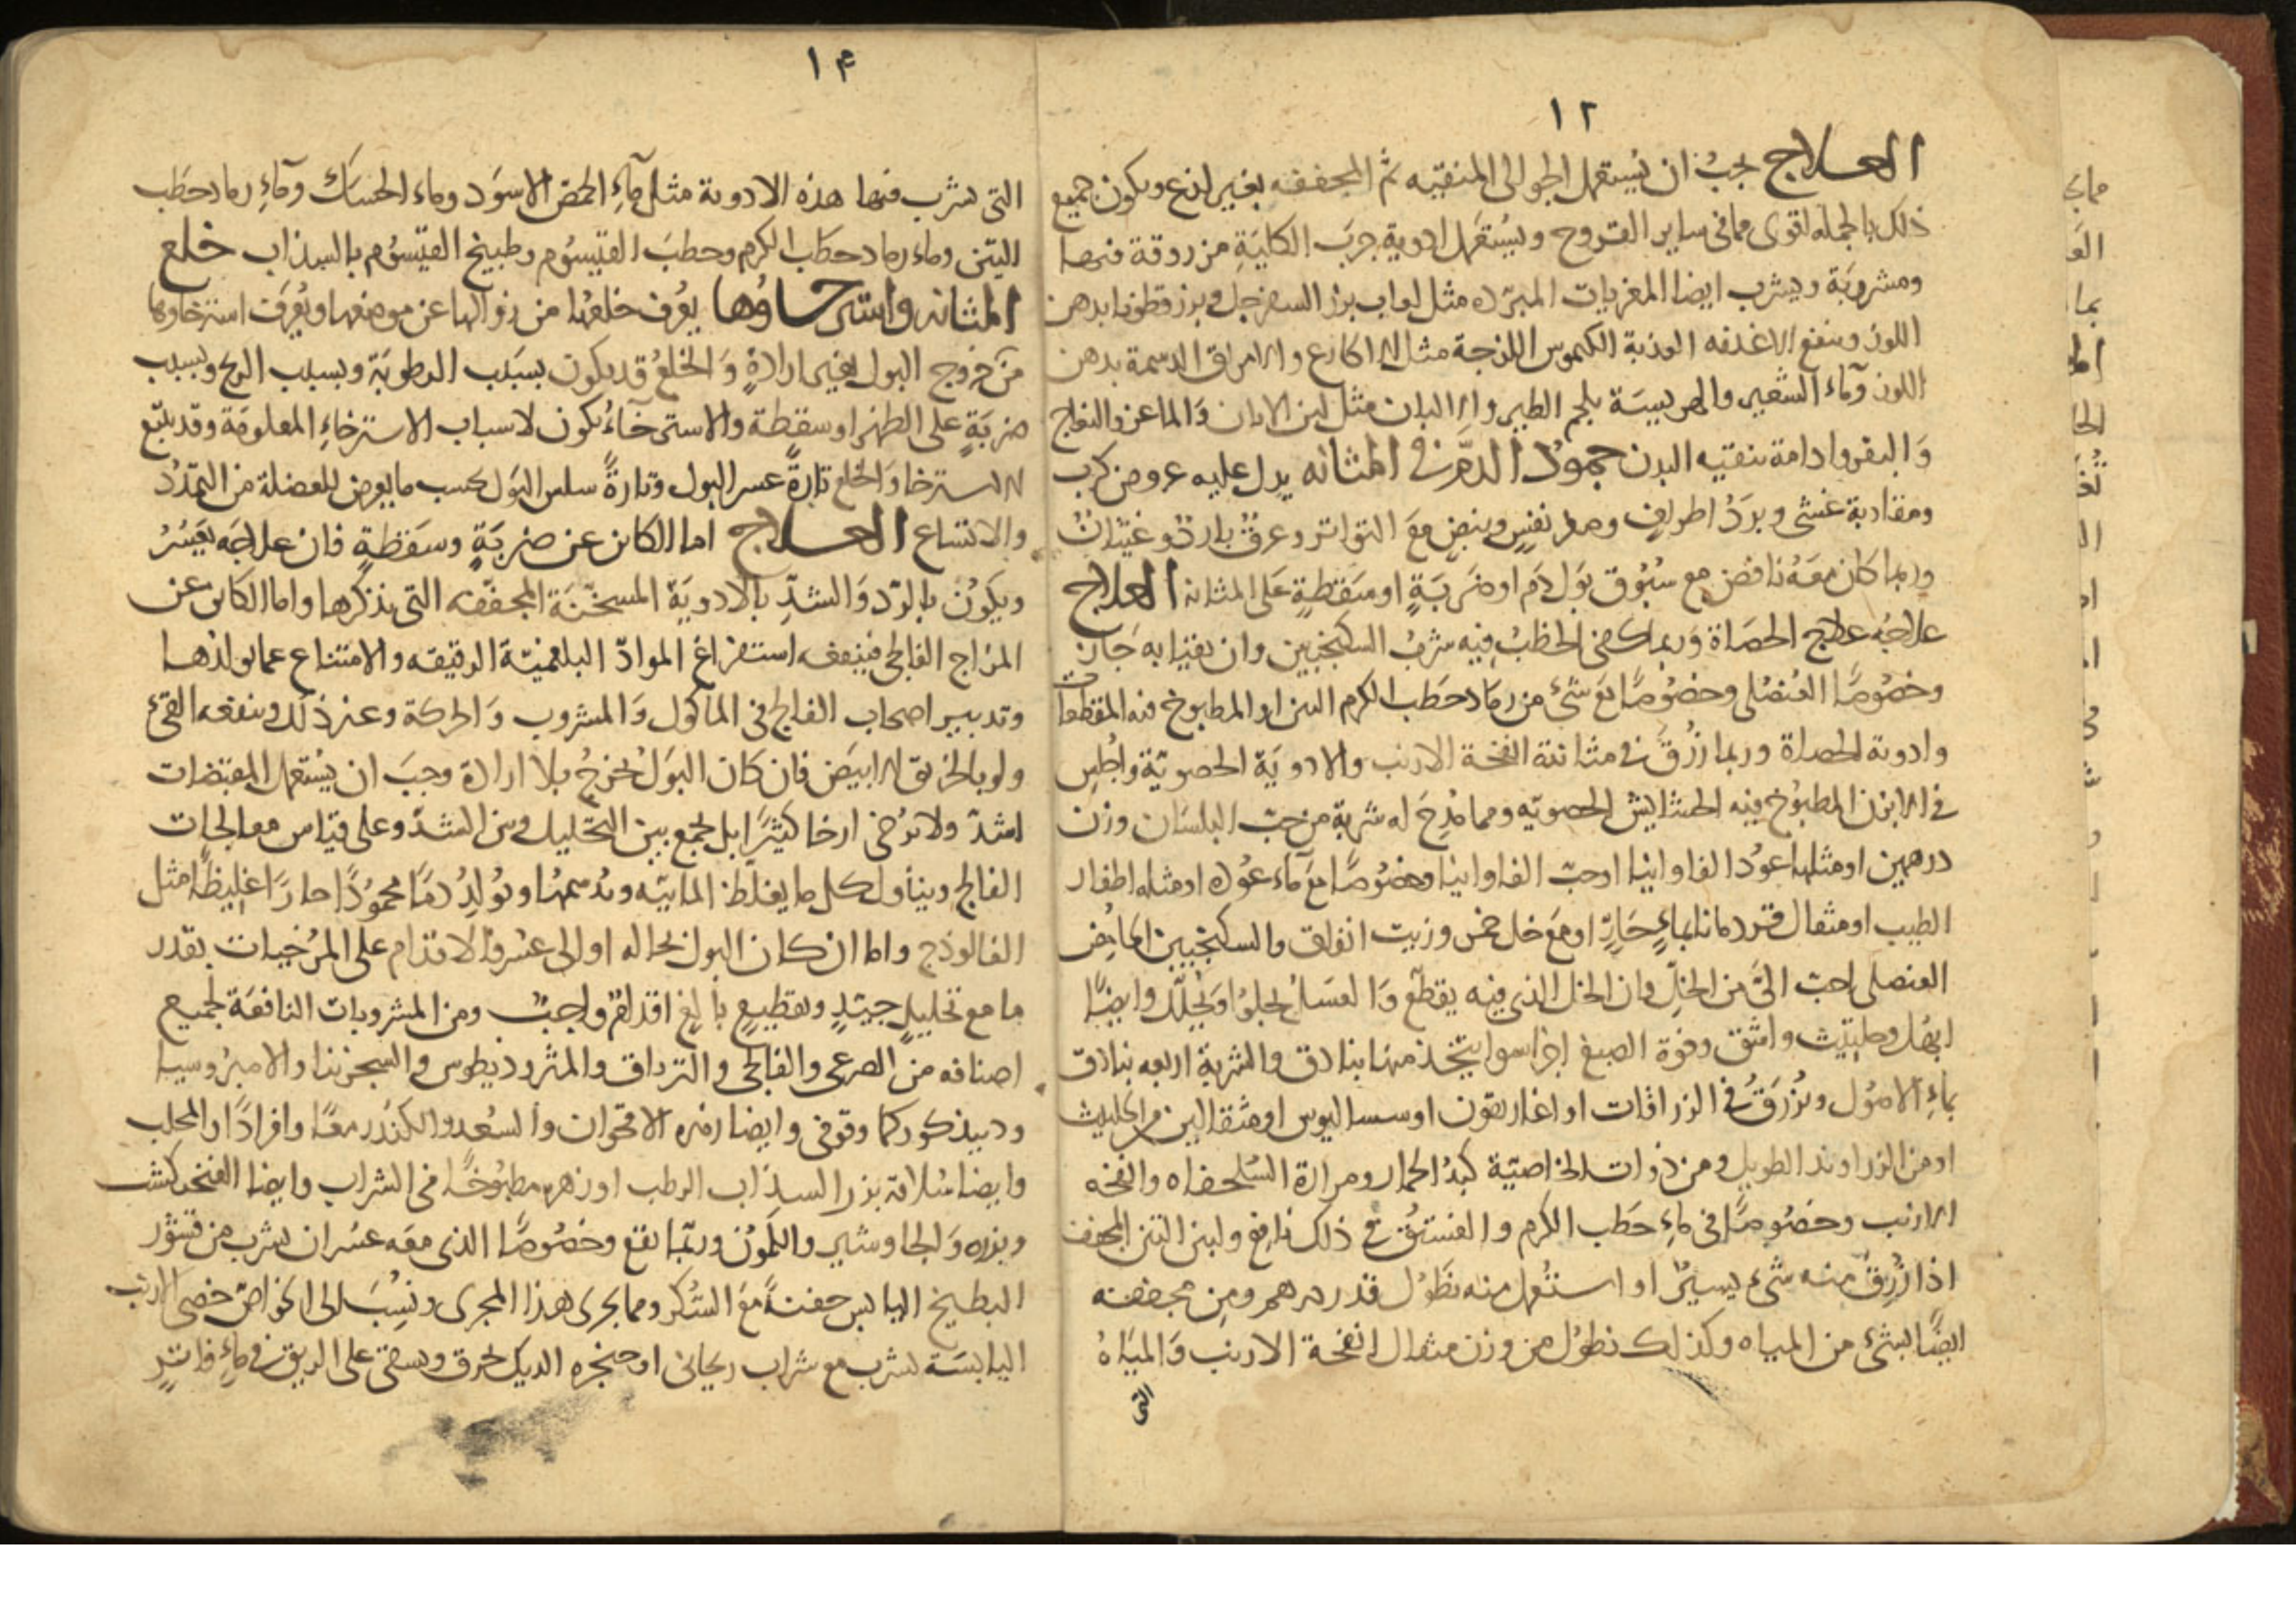 ١٢
العلاج يجب ان يستعمل الجوالى المنقيه ثم المجففه بغير لذع ويكون جميع
ذلك بالجمله اقوى مما فى ساير القروح ويستعمل ادوية جرب الكلية مزروقة فيها
ومشروبة ويشرب ايضا المغريات المبرده مثل لعاب بزر السفرجل وبزر قطونا بدهن
اللوز وينفع الاغذيه العذبة الكيموس اللزجة مثل الاكارع والامراق الدسمة بدهن
اللوز وماء الشعير والهريسة بلحم الطير والالبان مثل لبن الاتان والماعز والنعاج
والبقر وادامة تنقيه البدن جمود الدم فى المثانه يدل عليه عروض كرب
ومقاربة غشى وبرد اطراف وصغر نفس ونبض مع التواتر وعرق بارد وغثيان
وربما كان معه نافض مع سبوق بول دم او ضربة او سقطة على المثانه العلاج
علاجه علاج الحصاة وربما كفى الخطب فيه شرب السكنجبين وان تقيا به جاز
وخصوصا العنصلى وخصوصا مع شئ من رماد حطب الكرم التين او المطبوخ فيه المقطعات
وادوية الحصاة وربما زرق فى مثانته انفخة الارنب والادوية الحصوية واجلس
فى الابزن المطبوخ فيه الحشايش الحصويه ومما مدح له شربة من حب البلسان وزن
درهمين او مثلها عود الفاوانيا او حب الفاوانيا وخصوصا مع ماء عوده او مثله اظفار
الطيب او مثقال قردمانا بماء حار او مع خل خمر وزيت انفاق والسكنجبين الحامض
العنصلى احب الى من الخل فان الخل الذى فيه يقطع والعسل يجلوا ويحلل وايضا
ابهل وحلتيث واشق وفوة الصبغ اجزا سوا يتخذ منها بنادق والشربة اربعه بنادق
بماء الاصول ويزرق فى الزراقات او اغاريقون او سساليوس او مثقالين من الحلتيث
او من الزراوند الطويل ومن ذوات الخاصية كبد الحمار ومرارة السلحفاه وانفخه
الارنب وخصوصا فى ماء حطب الكرم والفستق فى ذلك نافع ولبن التين المجفف
اذا زرق منه شىء يسير او استعمل منه نطول قدر درهم ومن مجففه
ايضا بشئ من المياه وكذلك نطول من وزن مثقال انفخة الارنب والمياه
التى
١٤
التى يشرب فيها هذه الادوية مثل ماء الحمص الاسود وماء الحسك وماء رماد حطب
التين وماء رماد حطب الكرم وحطب القيسوم وطبيخ القيسوم بالسذاب خلع
المثانه واسترخاؤها يعرف خلعها من زوالها عن موضعها ويعرف استرخاوها
من خروج البول بغير ارادة والخلع قد يكون بسبب الرطوبة وبسبب الريح وبسبب
ضربة على الظهر او سقطة والاسترخاء يكون لاسباب الاسترخاء المعلومة وقد يتبع
الاسترخا والخلع تارة عسر البول وتارة سلس البول بحسب ما يعرض للعضلة من التمدد
والاتساع العلاج اما الكاين عن ضربة وسقطة فان علاجه يعسر
ويكون بالرد والشد بالادوية المسخنة المجففه التى نذكرها واما الكاين عن
المزاج الفالجى فينفعه استفراغ المواد البلغمية الرقيقه والامتناع عما يولدها
وتدبير اصحاب الفالج فى الماكول والمشروب والحركة وغير ذلك وينفعه القئ
ولو بالخربق الابيض فان كان البول يخرج بلا ارادة وجب ان يستعمل المقبضات
اشد ولا ترخى ارخا كثيرا بل يجمع بين التحليل وبين الشد وعلى قياس معالجات
الفالج ويتناول كل ما يغلظ المائيه ويدسمها ويولد دما محمودا حارا غليظا مثل
الفالوذج واما ان كان البول بحاله او الى عسر فالاقدام على المرخيات بقدر
ما مع تحليل جيد وتقطيع بالغ اقدام واجب ومن المشروبات النافعة لجميع
اصنافه من الصرعى والفالجى والترياق والمثروديطوس والسجزنيا والامبروسيا
ودبيذ كوركما وقوفى وايضا زهره الاقحوان والسعد والكندر معا وافرادا والمحلب
وايضا سلاقة بزر السذاب الرطب او زهره مطبوخا فى الشراب وايضا الفنجنكشت
وبزره والجاوشير والكمون وربما نفع وخصوصا الذى معه عسر ان يشرب من قشور
البطيخ اليابس حفنة مع السكر ومما يجرى هذا المجرى ونسب الى الخواص خصى الارنب
اليابسة يشرب مع شراب ريحانى او حنجره الديك يحرق ويسقى على الريق فى ماء فاتر